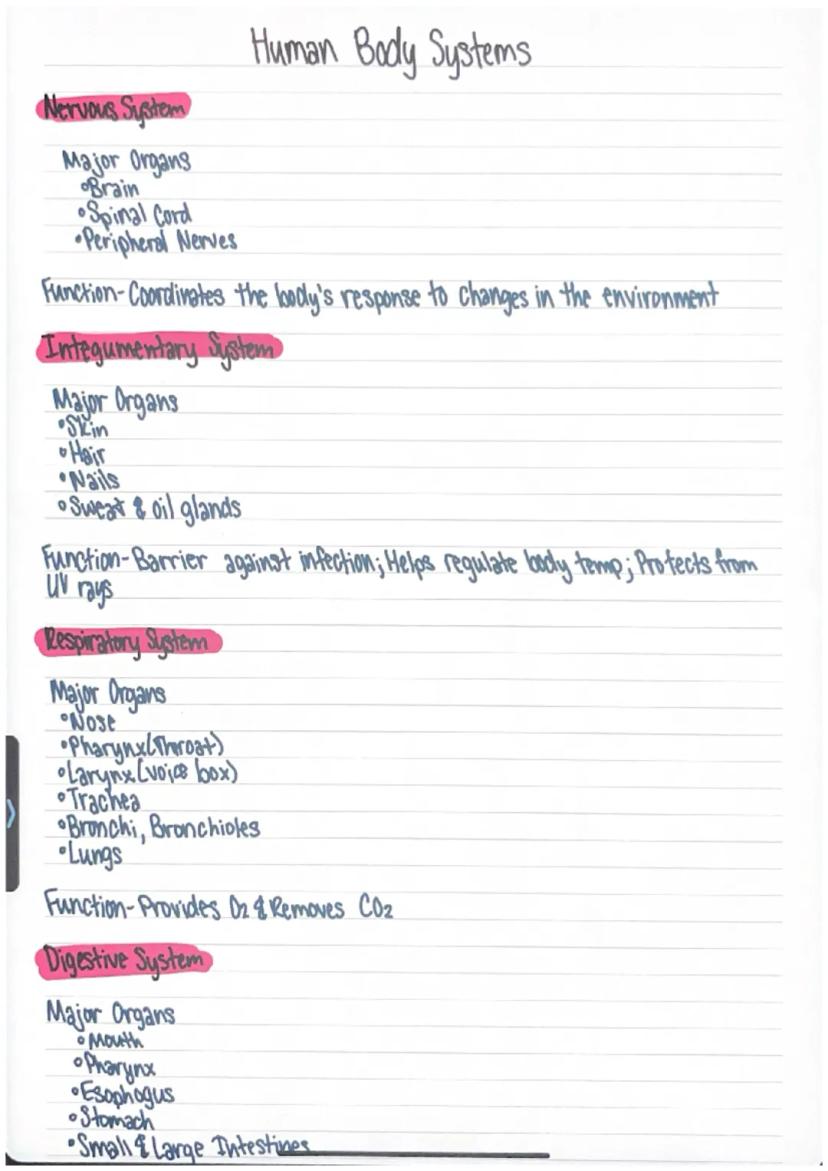 Human Body Systems
Nervous System
Major Organs
•Brain
•Spinal Cord
•Peripheral Nerves
Function-Coordinates the body's response to changes in the environment
Integumentary System
Major Organs
•Skin
•Hair
•Nails
•Sweat & oil glands
Function-Barrier against infection; Helps regulate body temp; Protects from
UV rays
Respiratory System
Major Organs
•Nose
•Pharynx(Throat)
•Larynx(voice box)
•Trachea
•Bronchi, Bronchioles
•Lungs
Function-Provides O2 & Removes CO2
Digestive System
Major Organs
•Mouth
•Pharynx
•Esophogus
•Stomach
•Small & Large Intestines